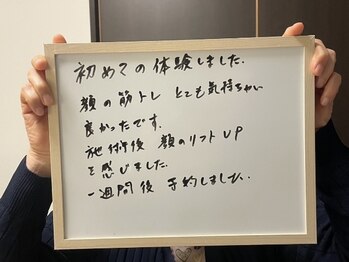 初めての体験しました.
顔の筋トレ とても気持ちがい
良かったです.
施術後 顔のリフトUP
を感じました.
一週間後 予約しました.